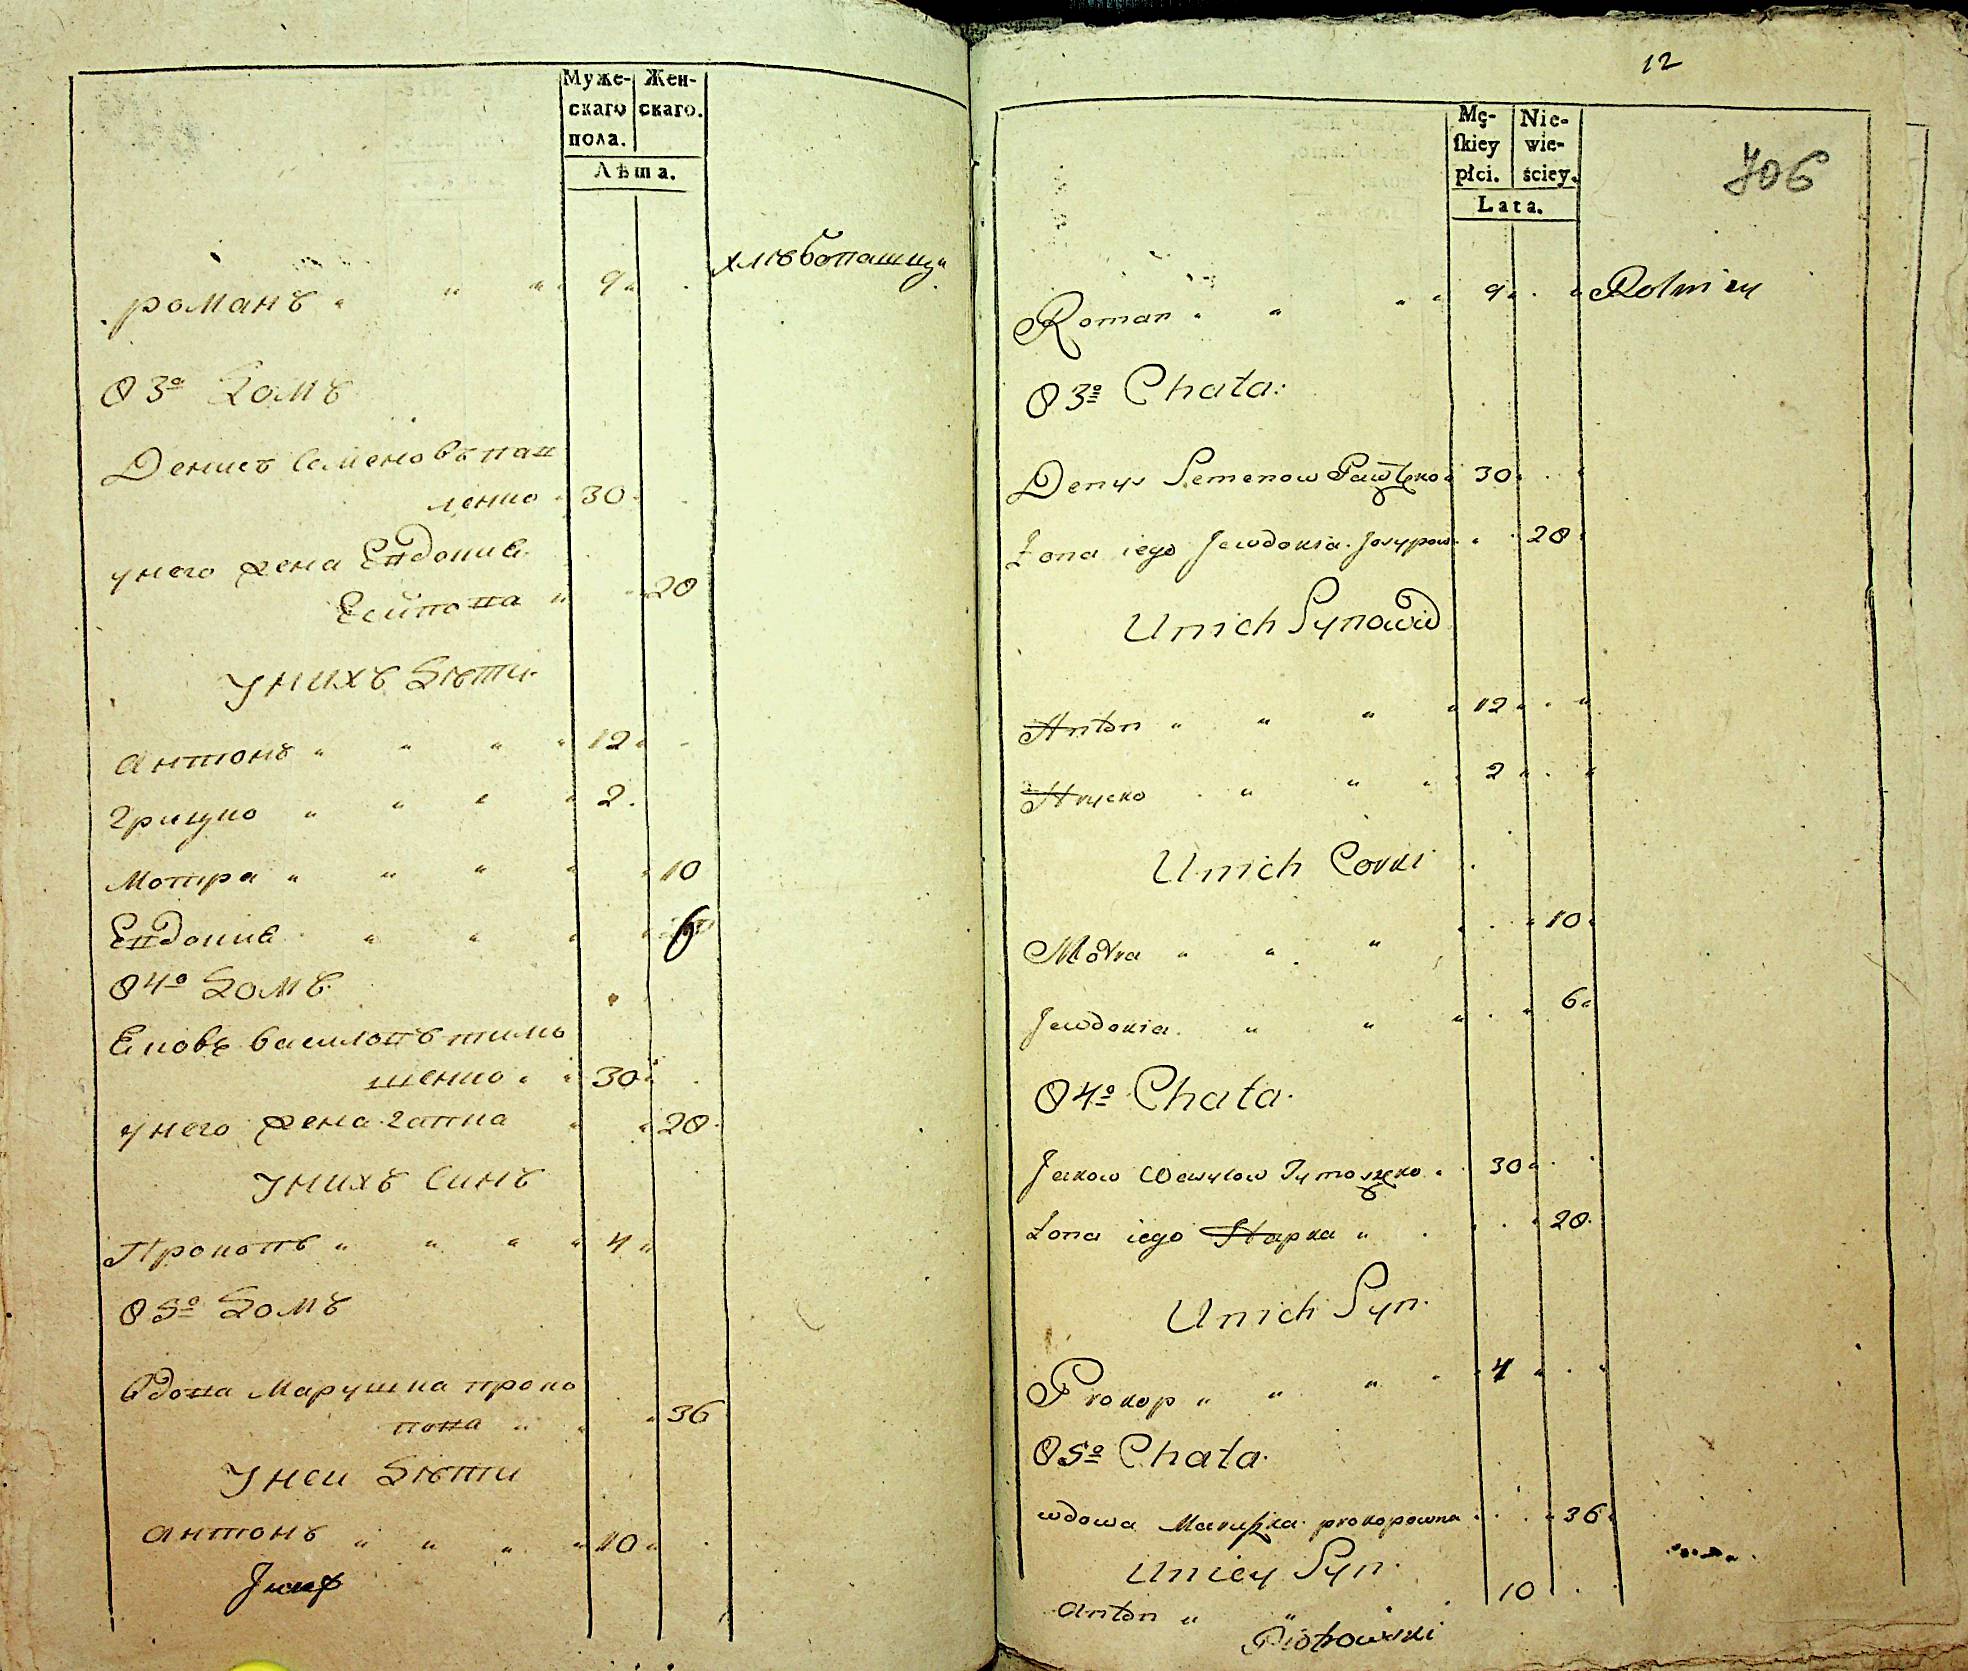 Муже-
скаго
пола.
Жен-
скаго.
Лѣта.
романъ 9 хлѣбопашцы
03º Домъ
Денисъ Семеновъ пав
ленко 30
унего жена Евдокиа
Есипова 20
Унихъ Дѣти
антонъ 12
Грицко 2
Мотра 10
Евдокиа 6
04º Домъ
Ековъ василовъ тимо
шенко 30
унего жена гапка 20
Унихъ Синъ
Прокопъ 4
05º Домъ
вдова Марушка проко
пова 36
Унеи Дѣти
антонъ 10
12
706
Mę-
ſkiey
płci.
Nie-
wie-
ściey.
Lata.
Roman 9 Rolnicy
03º Chata
Denys Semenow Pawlęko 30
Żona iego Jewdokia Josypow 20
Unich Synowie
Anton 12
Hrycko 2
Unich Corki
Motra 10
Jewdokia 6
04º Chata
Jakow Wasylow Tymoszęko 30
Żona iego Hapka 20
Unich Syn
Prokop 4
05º Chata
wdowa Maruszka prokopowna 36
Uniey Syn
Anton 10
Piotrowski